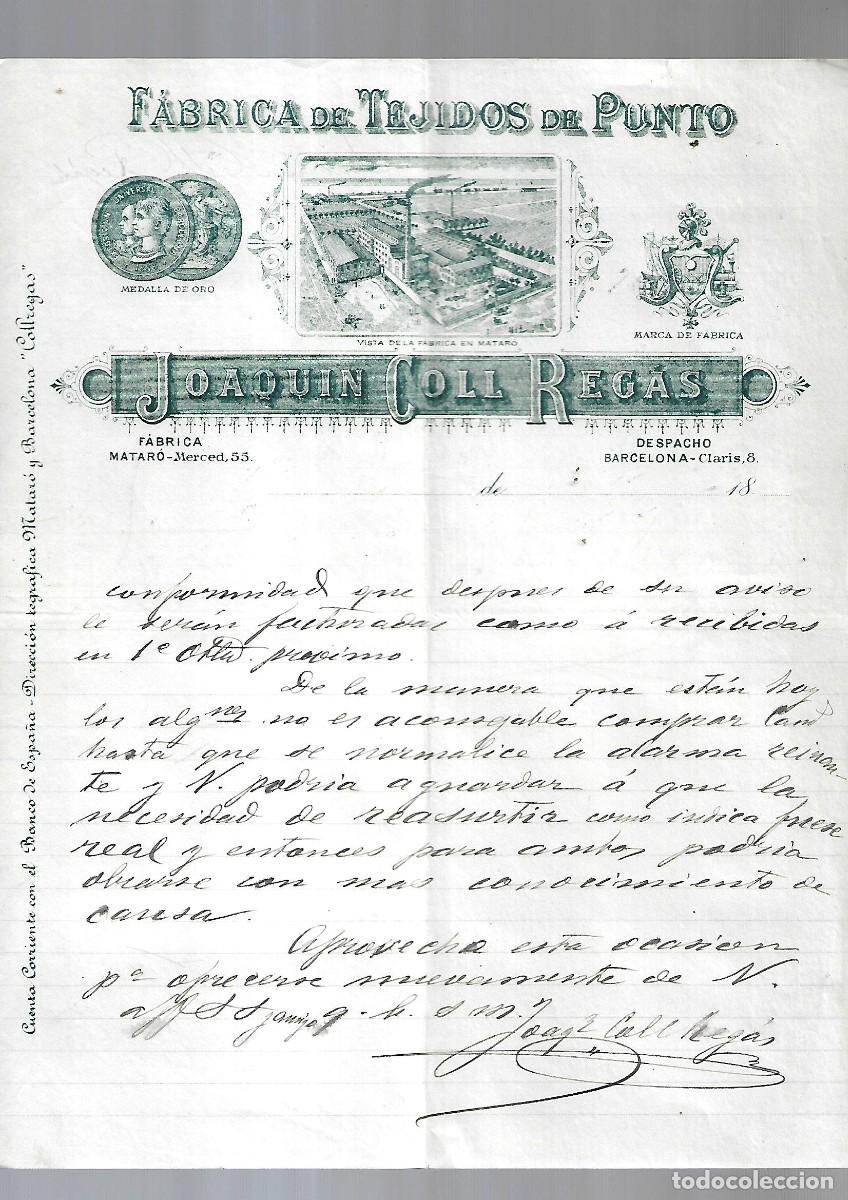 FÁBRICA DE TEJIDOS DE PUNTO
MEDALLA DE ORO
VISTA DE LA FÁBRICA EN MATARÓ
MARCA DE FÁBRICA
JOAQUIN COLL REGÁS
FÁBRICA
MATARÓ-Merced, 55.
DESPACHO
BARCELONA-Claris, 8.
de 18
Cuenta Corriente con el Banco de España - Dirección tegrafica Mataró y Barcelona "Collregas"
conformidad que despues de su aviso
le serán facturadas como á recibidas
en 1º proximo.
De la manera que están hoy
los algnes no es aconsegable comprar
hasta que se normalice la alarma reinan-
te y V. podria aguardar á que la
necesidad de reasurtir como indica fuese
real y entonces para ambos podria
obrarse con mas conocimiento de
causa.
Aprovecha esta ocasion
pª ofrecerse nuevamente de V.
affSS q. b. s m.
Joaqn Coll Regás
todocoleccion